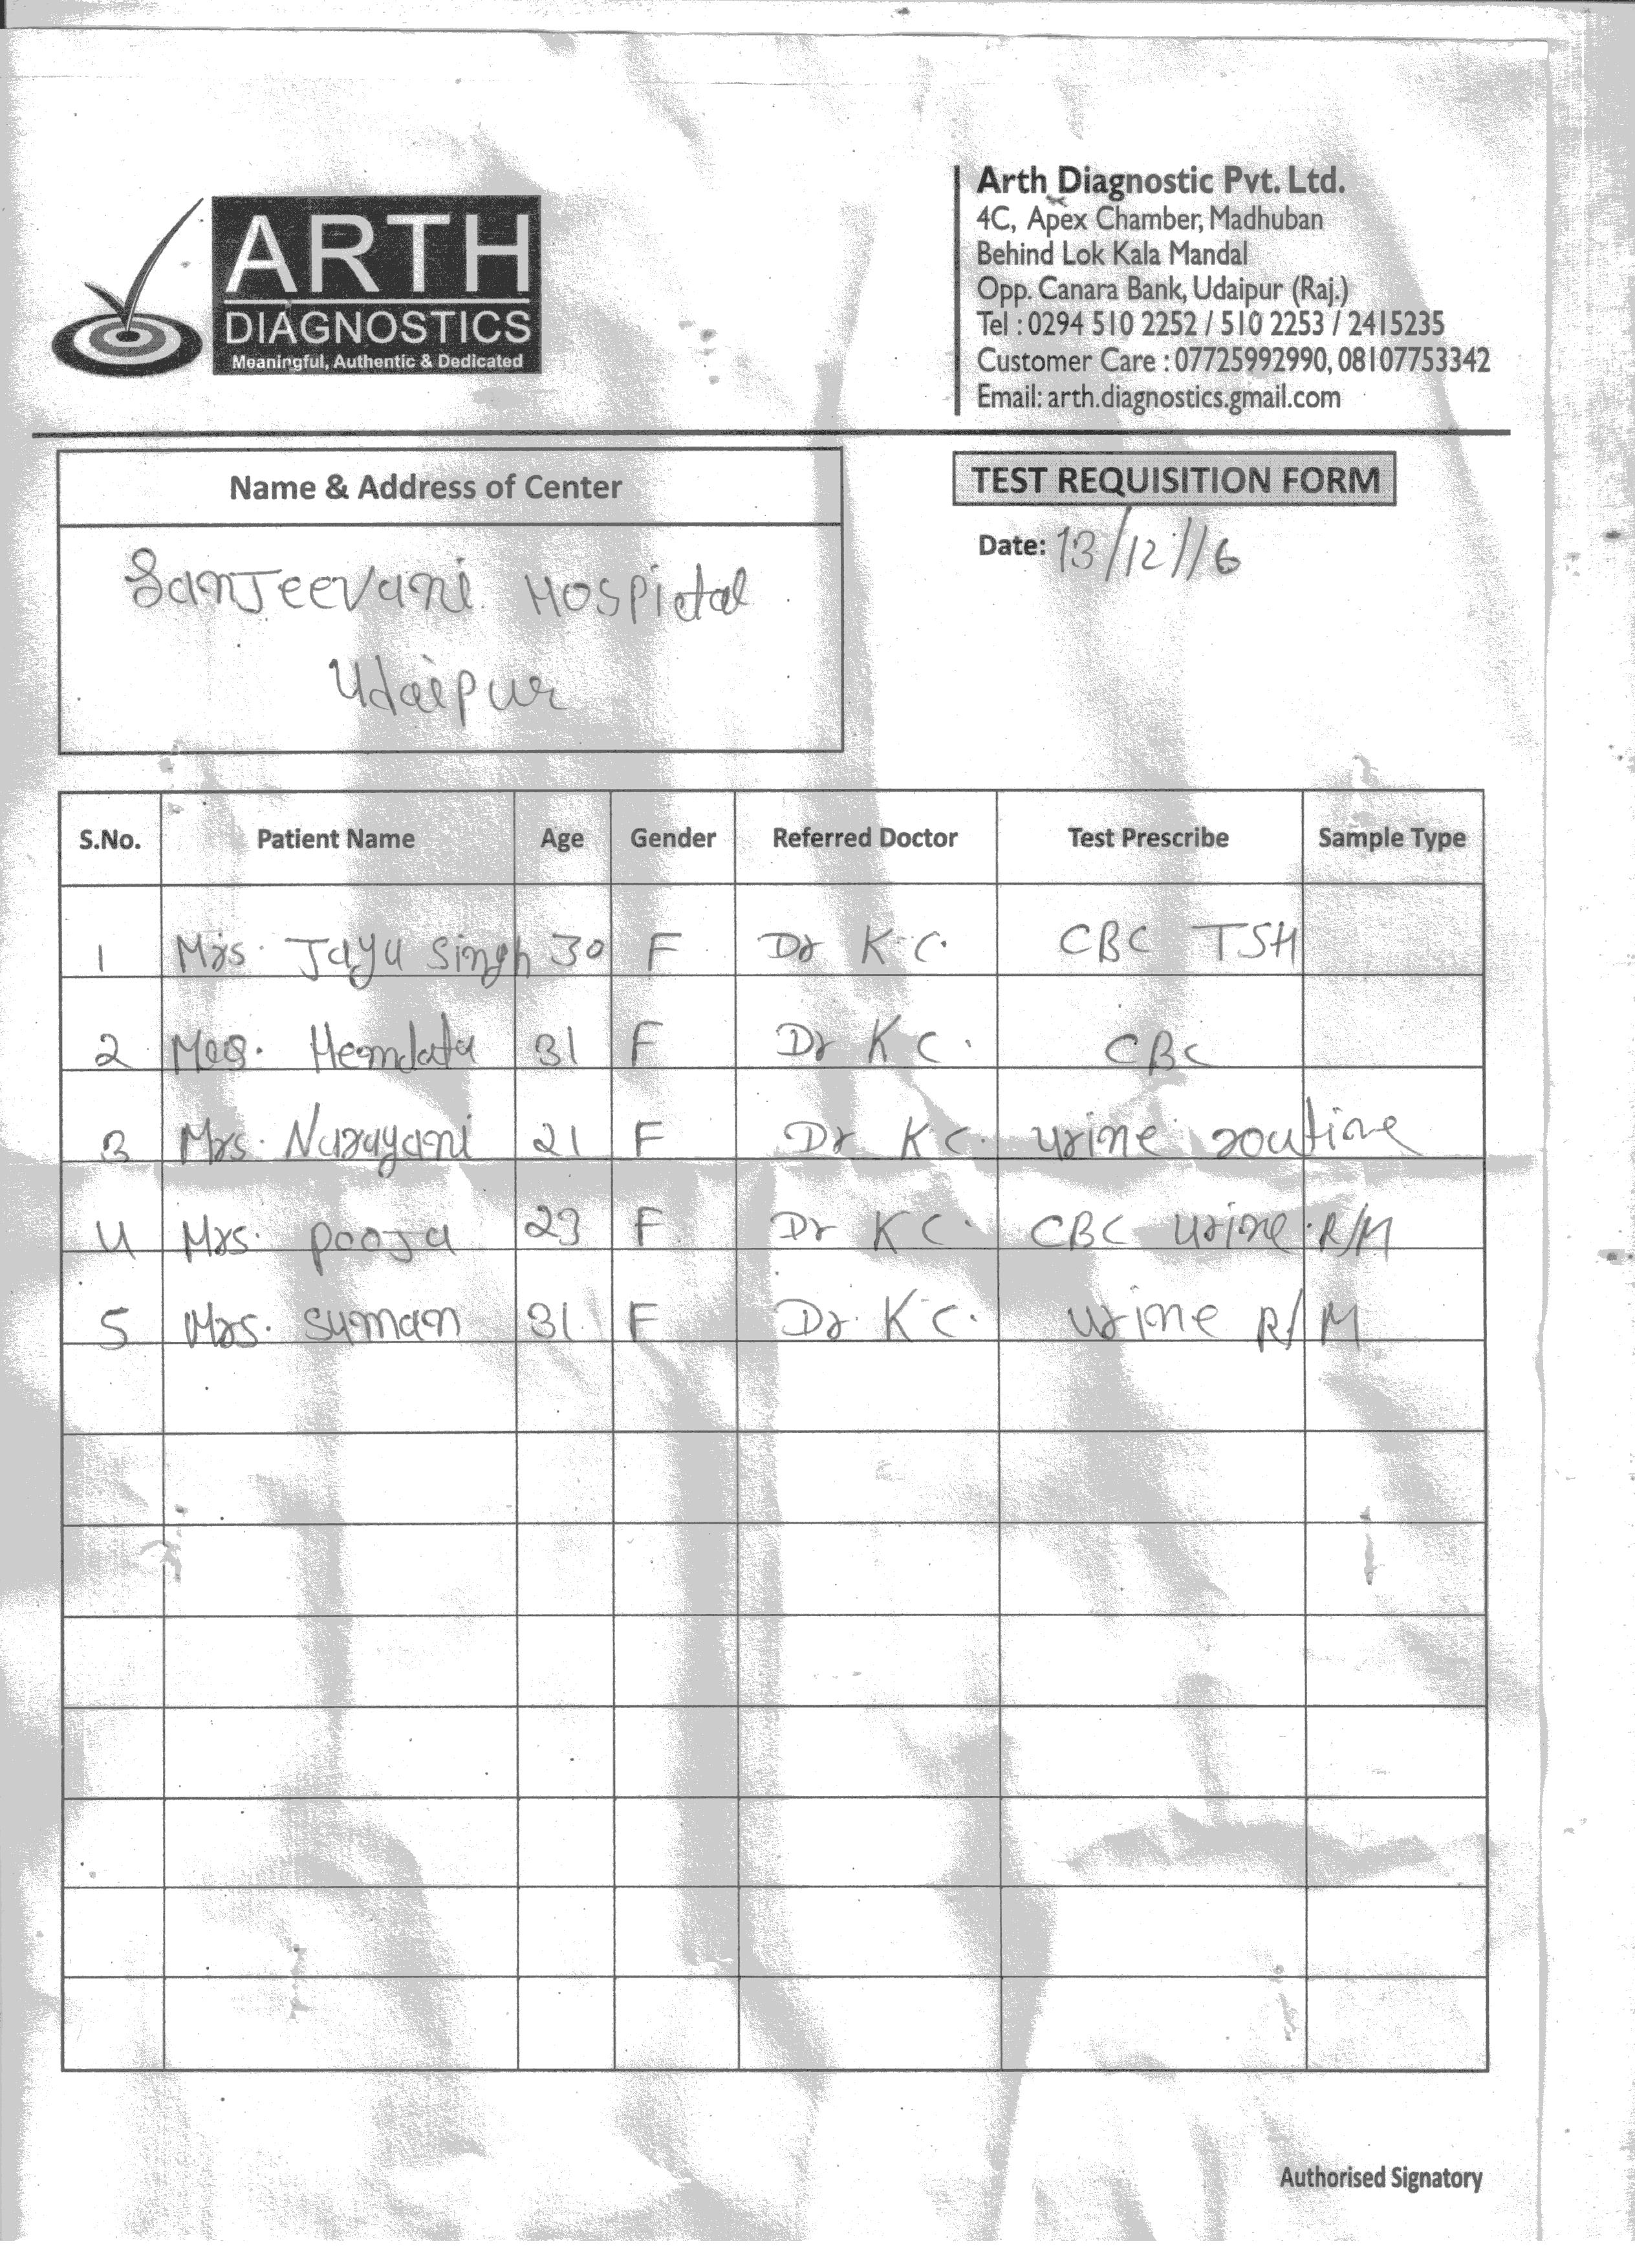 ARTH
DIAGNOSTICS
Meaningful, Authentic & Dedicated
Arth Diagnostic Pvt. Ltd.
4C, Apex Chamber, Madhuban
Behind Lok Kala Mandal
Opp. Canara Bank, Udaipur (Raj.)
Tel : 0294 510 2252 / 510 2253 / 2415235
Customer Care : 07725992990, 08107753342
Email: arth.diagnostics.gmail.com
Name & Address of Center
SanJeevani Hospital
Udaipur
TEST REQUISITION FORM
Date: 13/12/16
S.No. Patient Name Age Gender Referred Doctor Test Prescribe Sample Type
1 Mrs. Jaya Singh 30 F Dr K C. CBC TSH
2 Mrs. Hemlata 31 F Dr K C. CBC
3 Mrs. Narayani 21 F Dr K C. urine routine
4 Mrs. pooja 23 F Dr K C. CBC urine R/M
5 Mrs. suman 31 F Dr. K C. urine R/M
Authorised Signatory